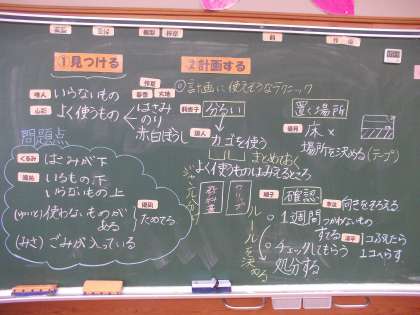 ①見つける
いらないもの
よく使うもの
はさみ
のり
赤白ぼうし
問題点
くるみ
はさみが下
いるもの、下
いらないもの上
使わないものが
ある
ためてる
(みさ) ごみが入っている
②計画する
◎計画に使えそうなテクニック
カゴを使う
まとめておく
よく使うものはみえるところ
教科書
置く場所
床×
場所を決める(テープ)
確認
向きをそろえる
1週間つかわないもの
すてる
1コふえたら
1コへらす
チェックしてもらう
処分する
ルールを決める